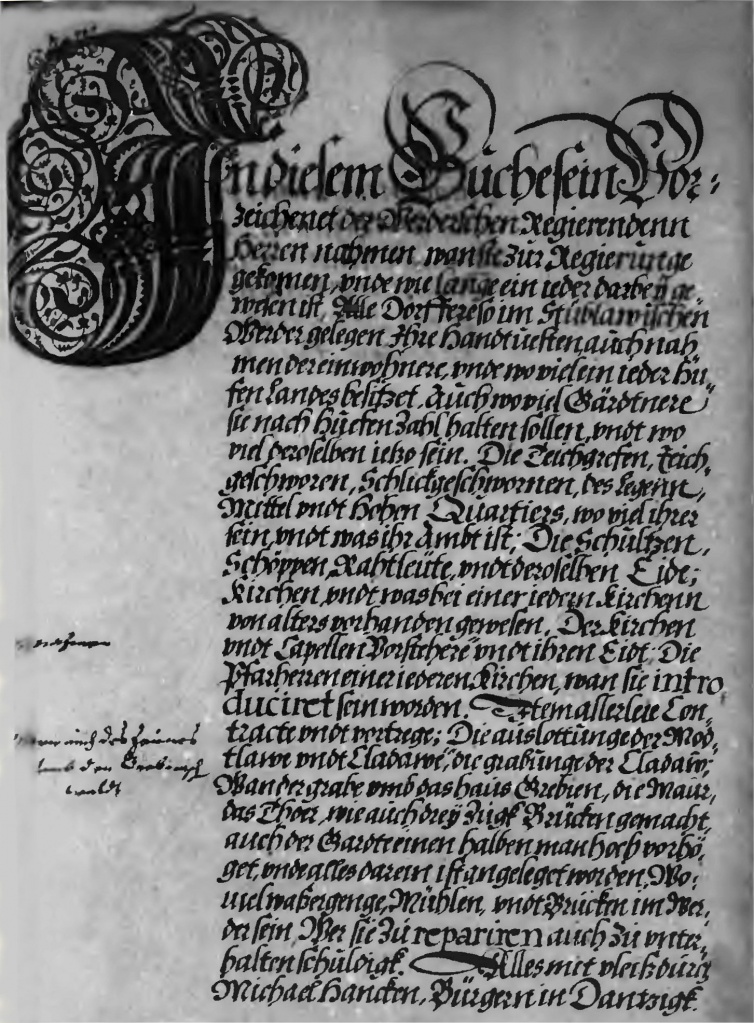 In diesem Buche sein Vor:
zeichenet der Werderschen Regierendenn
Herren nahmen, wan sie zur Regierunge
gekomen, vnde wie lange ein ieder darbey ge„
wesen ist, Alle Dörffere so im Stüblawischen
Werder gelegen Ihre Handtuesten auch nah
men der einwohnere, vnde wo viel ein ieder Hu„
fen Landes besitzet. Auch wo viel Gärdtnere
sie nach Huefen Zahl halten sollen, vndt wo
viel deroselben ietzo sein. Die Teichgrefen, Teich„
geschworen, Schlickgeschwornen, des Legenn,
Mittel vndt Hohen Quartiers, wo viel ihrer
sein, vndt was ihr Ambt ist; Die Schultzen,
Schöppen, Rahtleüte, vndt deroselben Eidt;
Kirchen, vndt was bei einer iedern Kirchenn
von alters vorhanden gewesen. Der Kirchen
vndt Capellen Vorstehere vndt ihren Eidt; Die
Pfarherren einer iederen Kirchen, wan sie intro
duciret sein worden. Item allerleie Con„
tracte vndt vortrege; Die auslottunge der Mod„
tlawe vndt Cladawe, die grabunge der Cladaw,
Wandergrabe vmb das haus Grebien, die Maur,
das Thoer, wie auch drey Zugk Brücken gemacht,
auch der Gardte einen halben man hoch vorhö„
get, vnde alles darein ist angeleget worden, Wo„
uiel waßergenge, Mühlen, vndt Brücken im Wer„
der sein, Wer sie zu repariren auch zu vnter„
halten schuldigk. Alles met vleiß durch
Michael Hancken, Bürgern in Dantzigk.
auch des